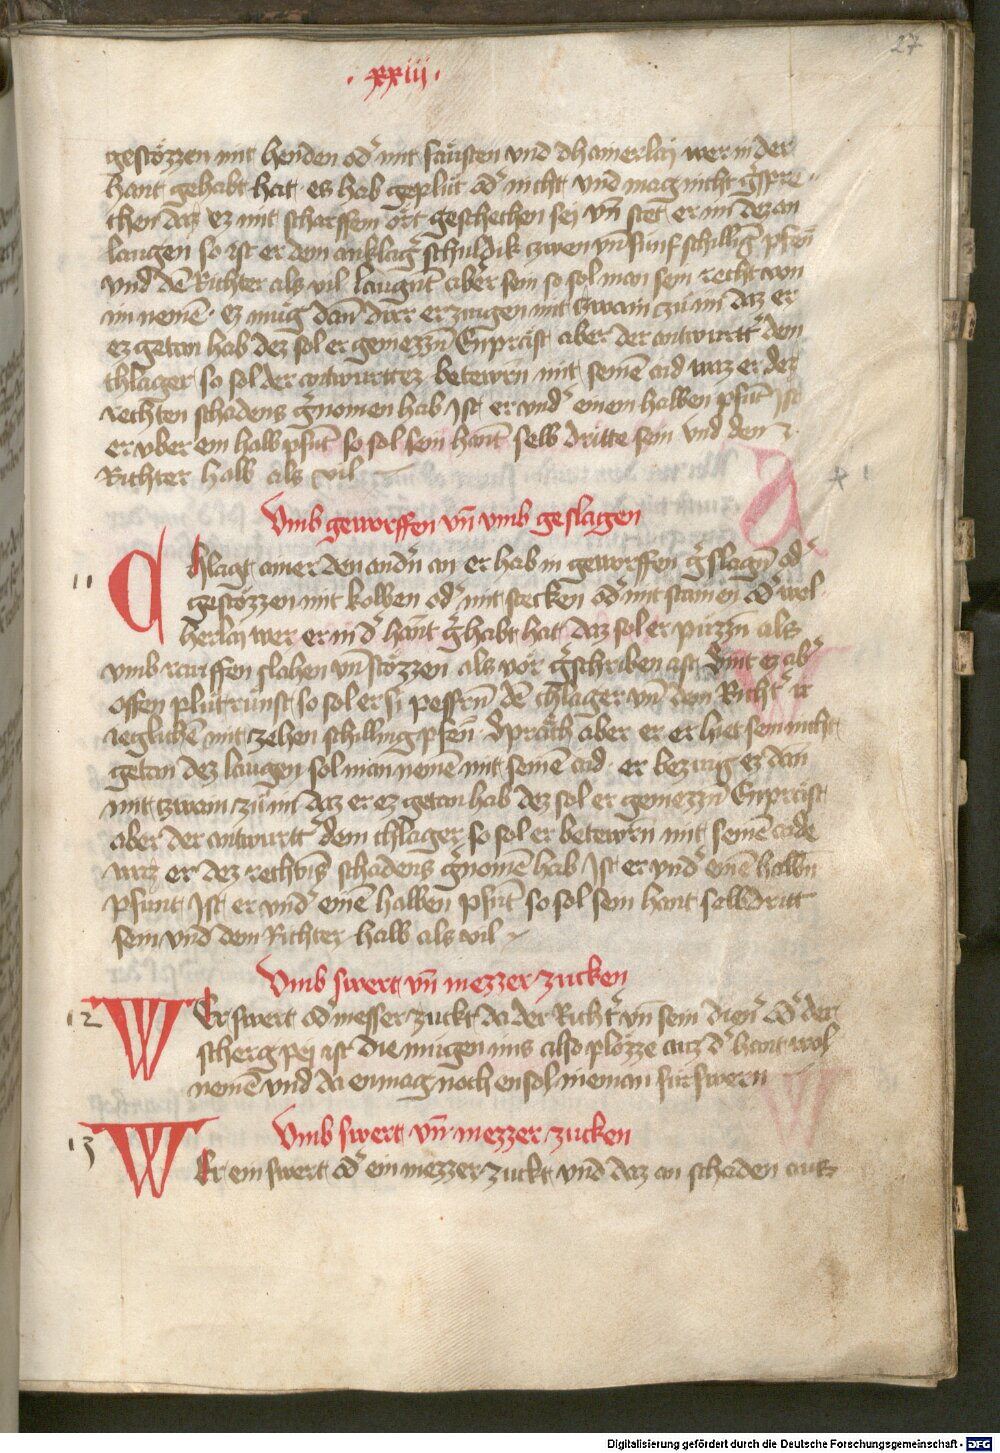 27
· xxiii ·
gestözzen mit henden od' mit fäusten vnd dhainerlaÿ wer in der
hant gehabt hat es hab geplüt od' nicht vnd mag nicht g'spre
chen daz ez mit scharffem ort geschechen seÿ vn̄ stet er im dez an
laugen so ist er dem anklag' schuldik zwen vn̄ fünf schilling pfen̄
vnd dē Richter als vil laugnt aber sein so sol man sein recht von
im nemē · ez müg dann diser erzeugen mit zwain zu im daz er
ez getan hab dez sol er geniezzn̄ Enprist aber der antwurtt' dem
chlager so sol der antwurtter betewrn̄ mit seinē aid waz er dez
rechten schadens g'nomen hab Ist er vnd' einem halben pfūt Ist
er vber ein halb pfūt so sol sein hant selb dritte sein vnd dem
Richter halb als vil
Vmb geworffen vn̄ vmb geslagen
11
Chlagt ainer den andn̄ an er hab in geworffen g'slagn̄ od'
gestözzen mit kolben od' mit stecken od' mit stainen od' wel
herlaÿ wer er in d' hant g'habt hat daz sol er püzzn̄ als
vmb rauffen slahen vn̄ stözzen als vor g'schriben ist Sint ez ab'
offen plütrünst so sol er si pessrn̄ dē chlager vn̄ dem Richt' ir
ieglichē mit zehen schilling pfen̄ Spräch aber er er hiet sein nicht
getan dez laugen sol man nemē mit seinē aid · er bezeug ez dan̄
mit zwain zu im daz er ez getan hab dez sol er geniezzn̄ Enprist
aber der antwurtt' dem chlager so sol er betewrn̄ mit seinē aide
waz er dez rechtn̄s schadens g'nomē hab Ist er vnd' einē halbn̄
pfunt Ist er vnd' einē halben pfūt so sol sein hant selbdritt
sein vnd dem Richter halb als vil
Vmb swert vn̄ mezzer zucken
12
Wer swert od' messer zuckt da der Richt' vn̄ sein dien' od' der
scherg peÿ ist die mügen ims also plözze auz d' hant wol
nemē vnd da enmag noch ensol nieman für swern
13
Vmb swert vn̄ mezzer zucken
Wer ein swert od' ein mezzer zuckt vnd daz an schaden auz
Digitalisierung gefördert durch die Deutsche Forschungsgemeinschaft - DFG